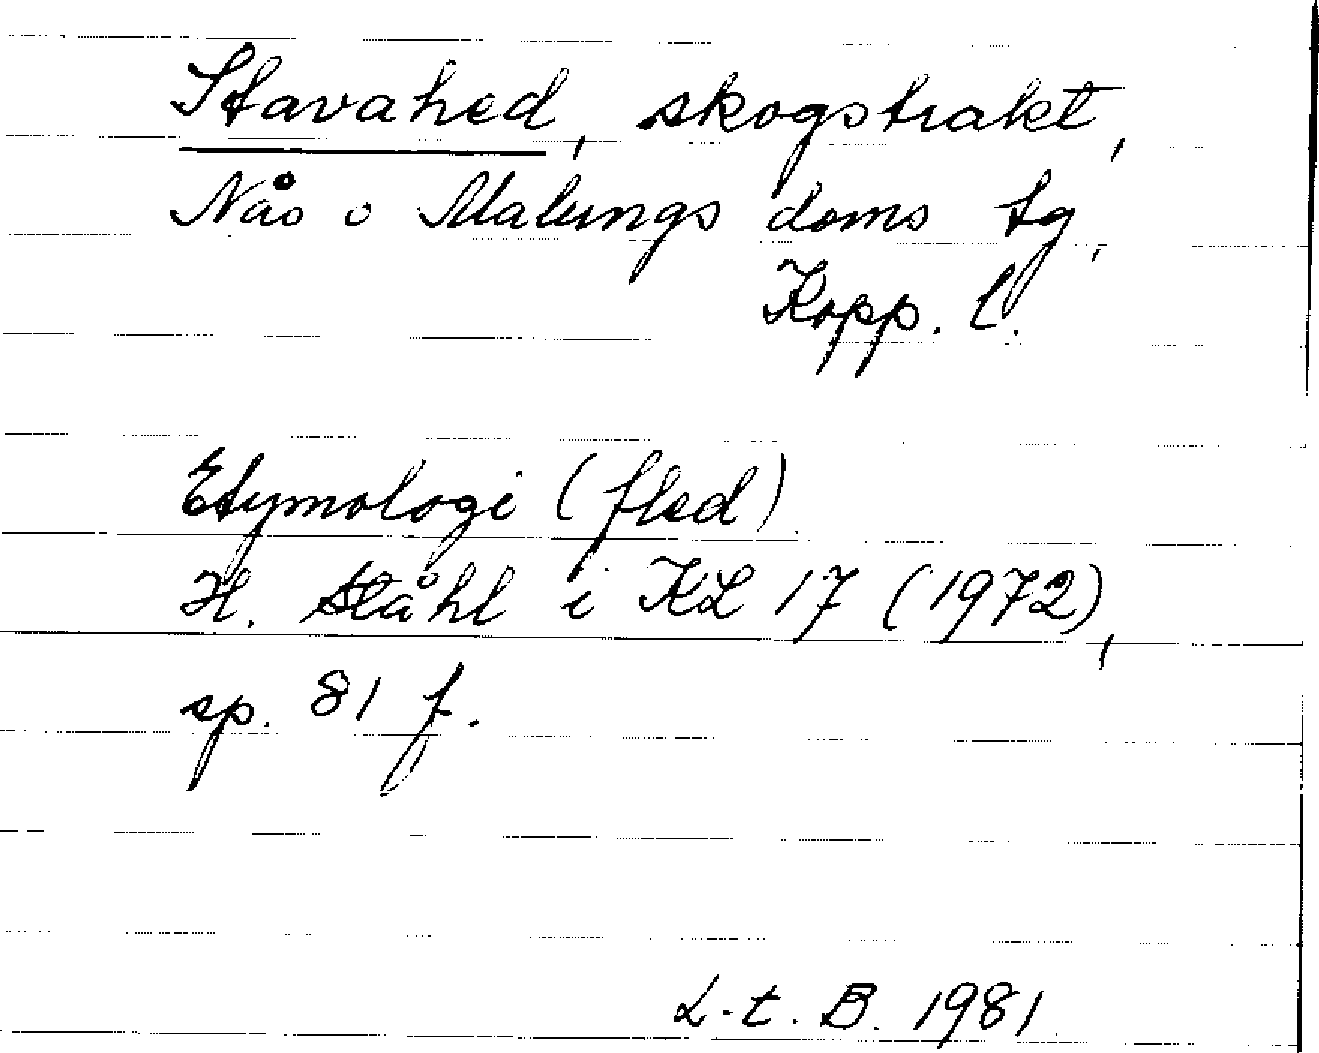 Stavahed, skogstrakt,
Nås o Malungs doms tg,
Kopp. l.
Etymologi (fled)
H. Ståhl i KL 17 (1972),
sp. 81 f.
L.t.B. 1981